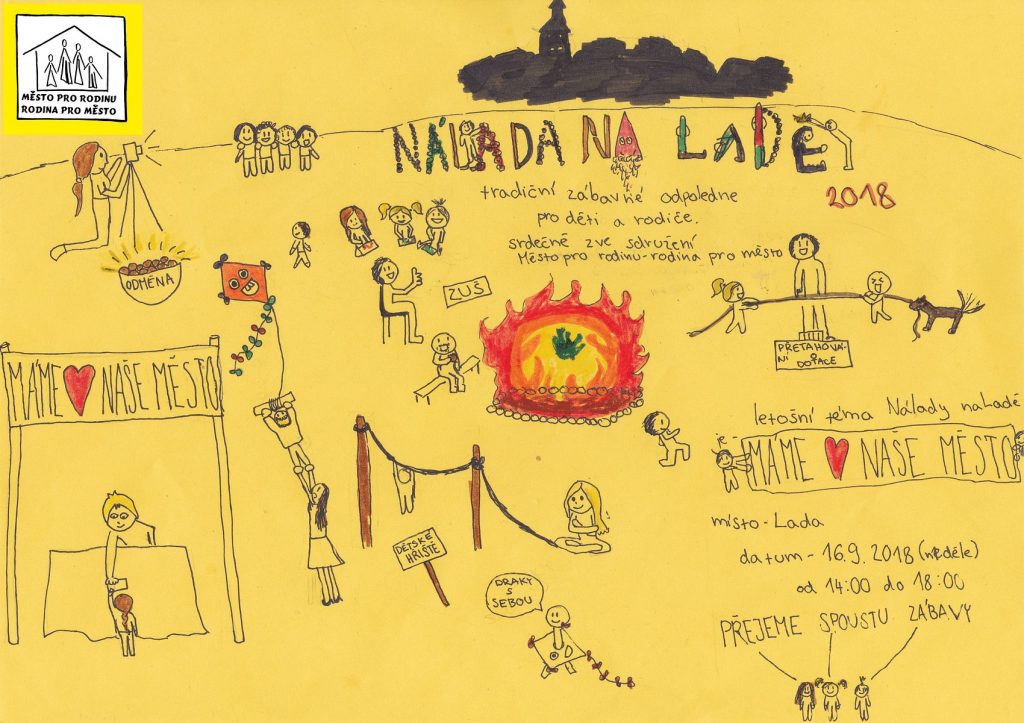 MĚSTO PRO RODINU
RODINA PRO MĚSTO
NÁLADA NA LADĚ
2018
tradiční zábavné odpoledne
pro děti a rodiče.
srdečně zve sdružení
Město pro rodinu-rodina pro město
ODMĚNA
ZUŠ
PŘETAHOVÁ-
NÍ O DOTACE
MÁME ❤ NAŠE MĚSTO
letošní téma Nálady naLadě
je -
MÁME ❤ NAŠE MĚSTO
DĚTSKÉ
HŘIŠTĚ
DRAKY
S
SEBOU
místo - Lada
datum - 16.9. 2018 (neděle)
od 14:00 do 18:00
PŘEJEME SPOUSTU ZÁBAVY